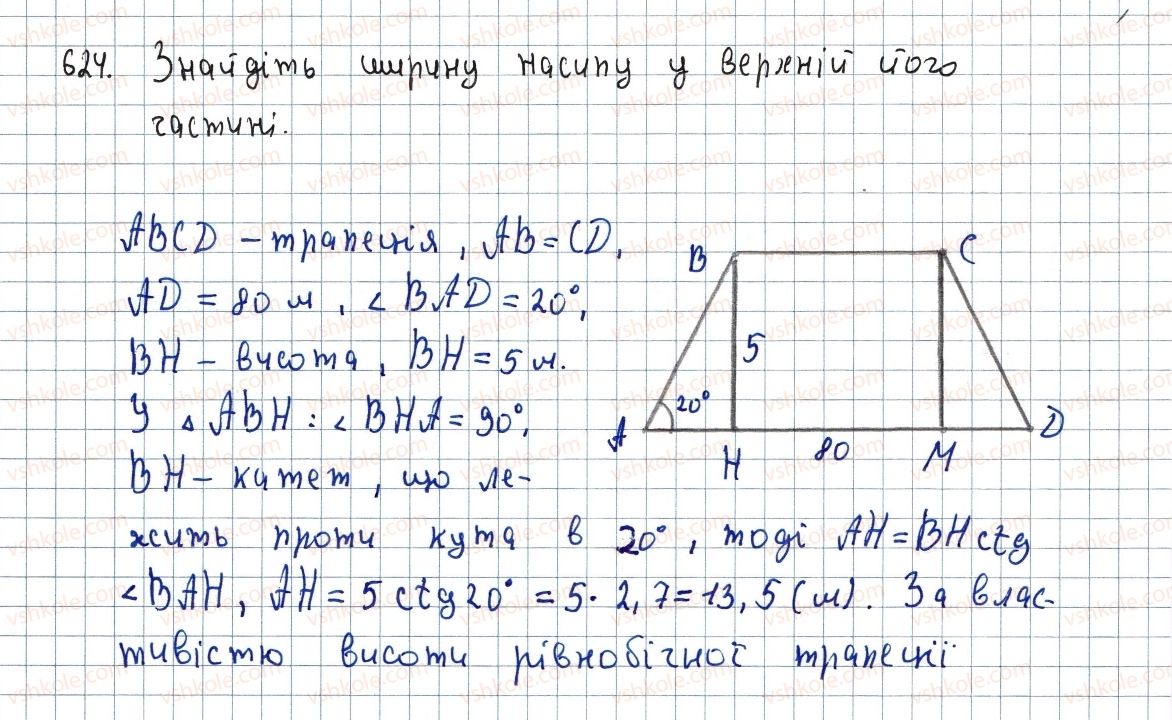 624. Знайдіть ширину насипу у верхній його
частині.
ABCD – трапеція, AB = CD,
AD = 80 м, ∠ BAD = 20°,
BH – висота, BH = 5 м.
У △ ABH : ∠ BHA = 90°,
BH – катет, що ле-
жить проти кута в 20°, тоді AH = BH ctg
∠ BAH, AH = 5 ctg 20° = 5 · 2,7 = 13,5 (м). За влас-
тивістю висоти рівнобічної трапеції
B C
5
20°
A H 80 M D